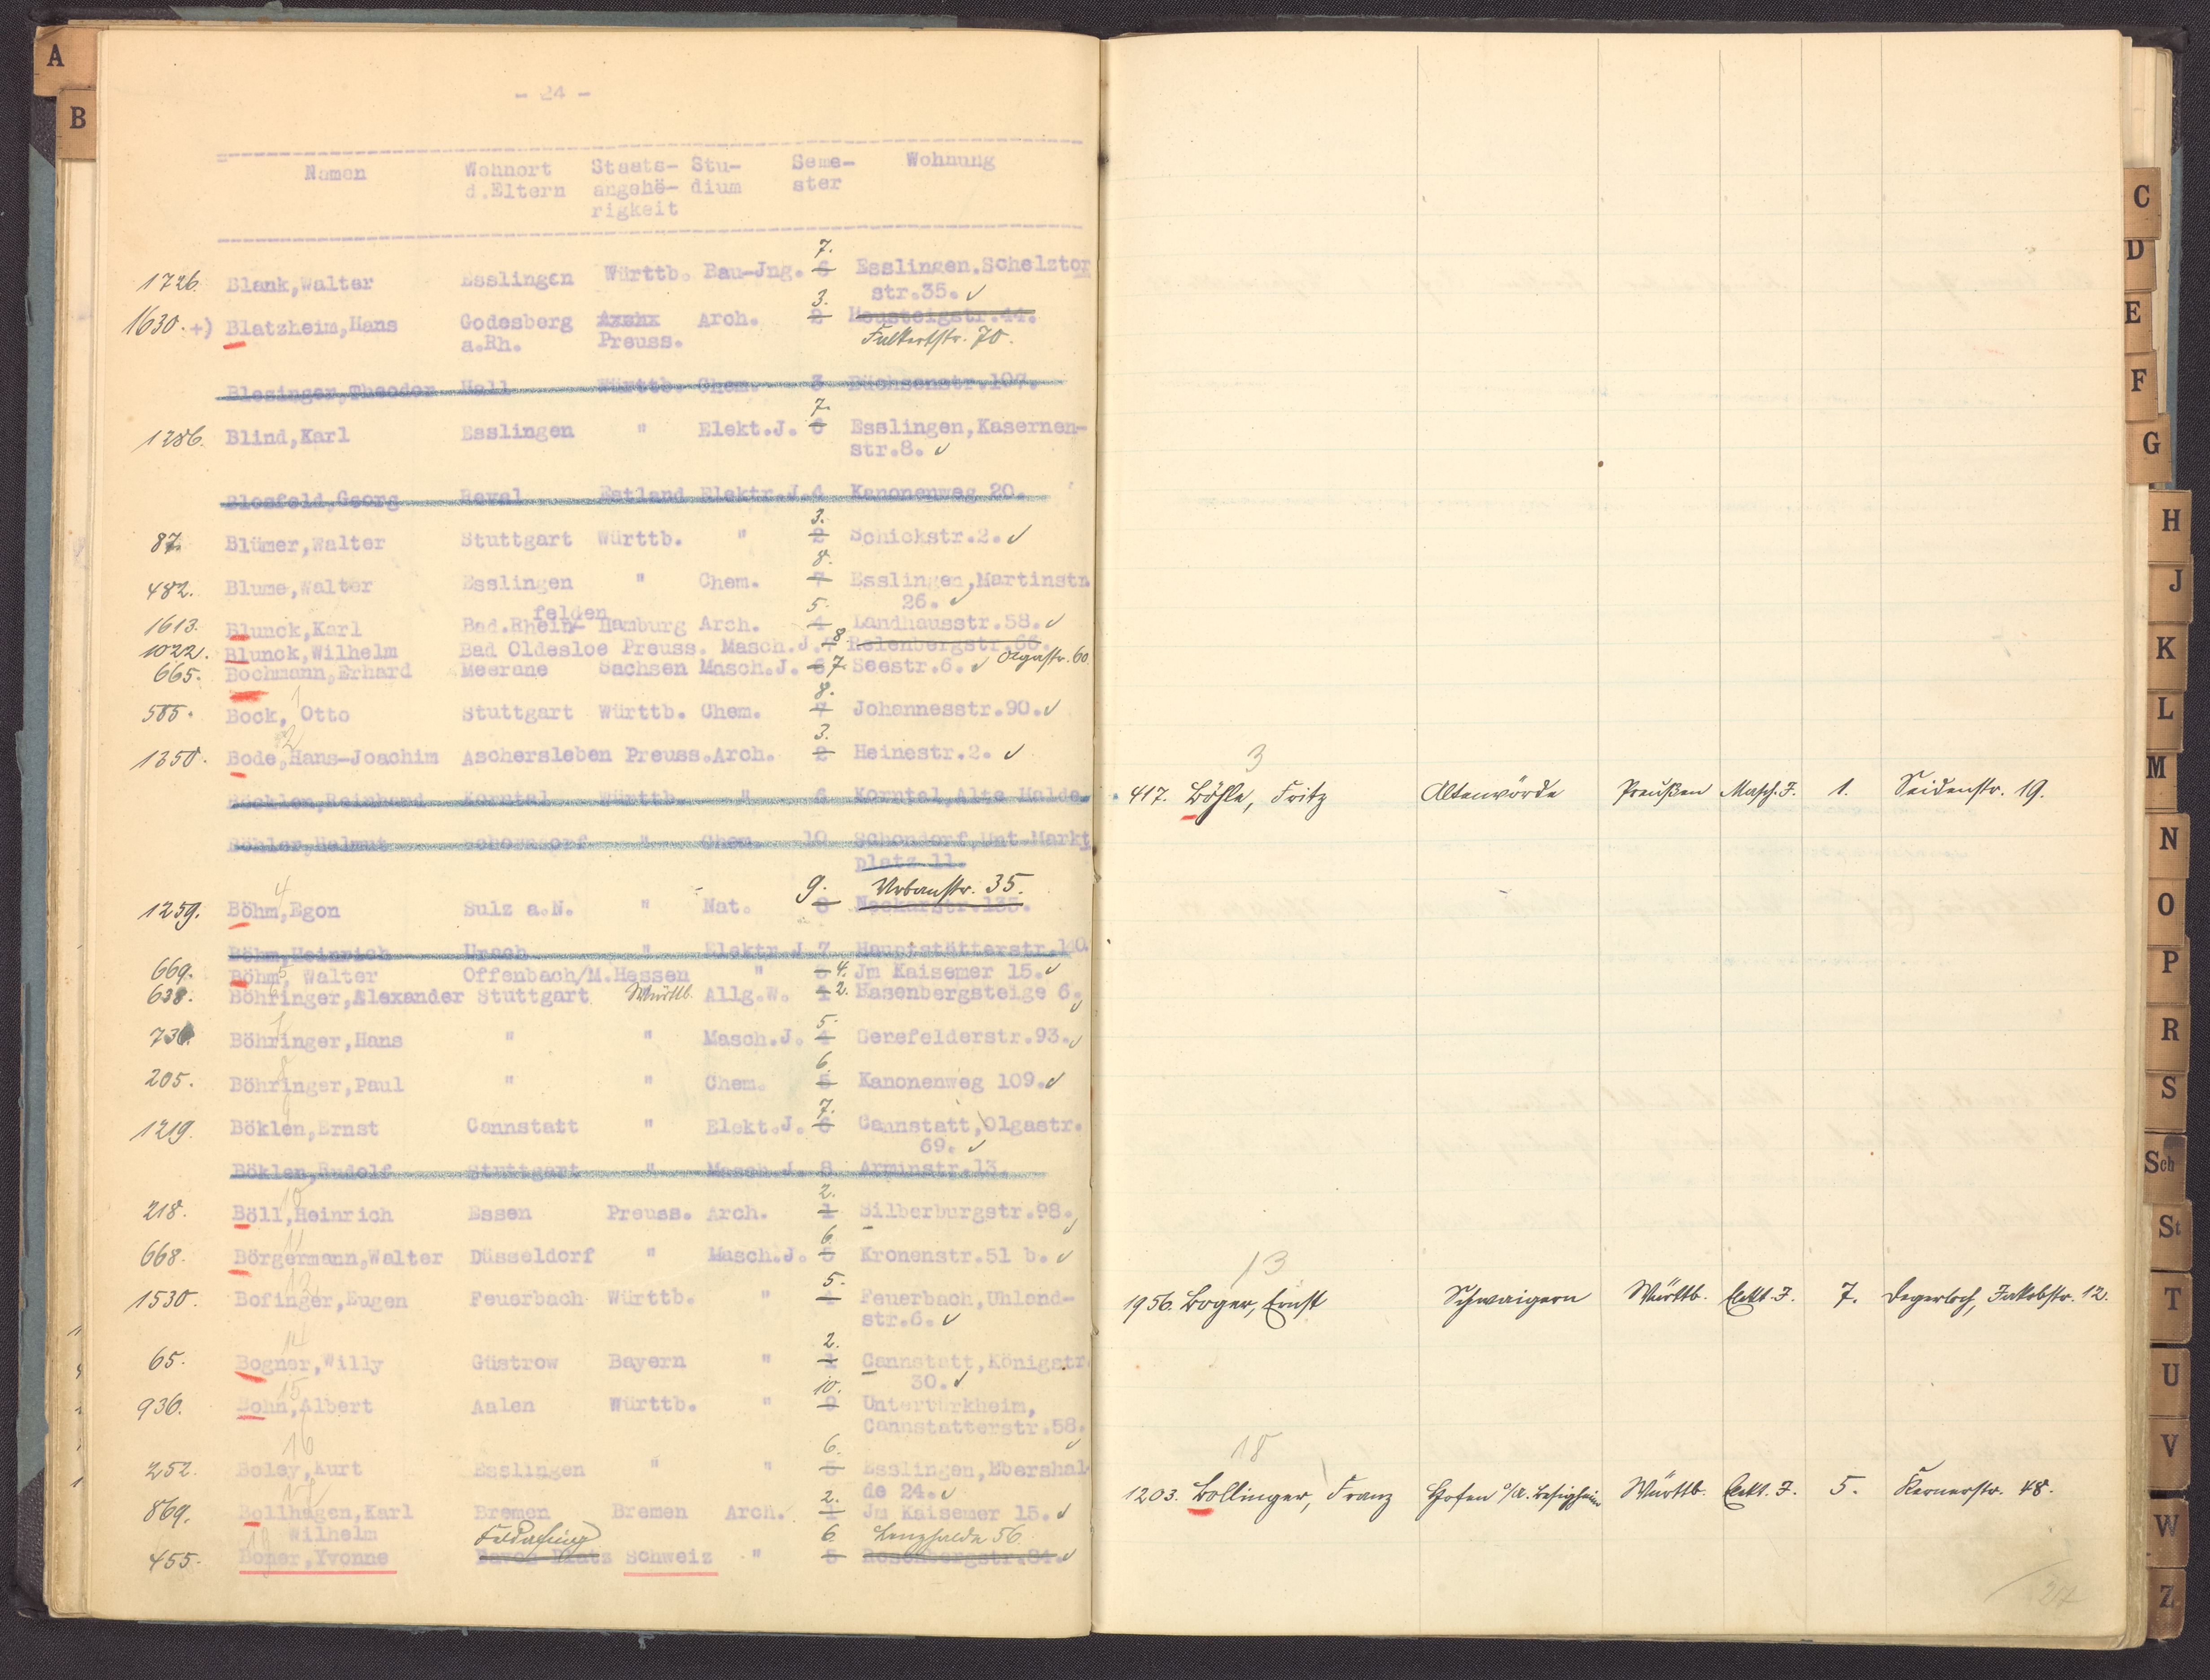 A
B
- 24 -
Namen Wohnort Staats- Stu- Seme- Wohnung
d.Eltern angehö- dium ster
rigkeit
7.
1726. Blank,Walter Esslingen Württb. Bau-Jng. 6 Esslingen.Schelztor
str.35. ✓
3.
1630. +) Blatzheim,Hans Godesberg Arch. 2 Heusteigstr.44.
a.Rh. Preuss. Falkertstr. 70.
Blezinger,Theodor Hall Württb. Chem. 3 Büchsenstr.107.
7.
1286. Blind,Karl Esslingen " Elekt.J. 6 Esslingen,Kasernen-
str.8. ✓
Blosfeld,Georg Reval Estland Elektr.J.4 Kanonenweg 20.
3.
87. Blümer,Walter Stuttgart Württb. " 2 Schickstr.2. ✓
8.
482. Blume,Walter Esslingen " Chem. 7 Esslingen,Martinstr.
26. ✓
felden 5.
1613. Blunck,Karl Bad.Rhein- Hamburg Arch. 4 Landhausstr.58. ✓
1022. Blunck,Wilhelm Bad Oldesloe Preuss. Masch.J. 8 Relenbergstr.66.
665. Bochmann,Erhard Meerane Sachsen Masch.J. 6 7. Seestr.6. ✓ Olgastr. 60.
1 8.
585. Bock, Otto Stuttgart Württb. Chem. 7 Johannesstr.90. ✓
2 3.
1350. Bode,Hans-Joachim Aschersleben Preuss.Arch. 2 Heinestr.2. ✓
Böcklen,Reinhard Korntal Württb. " 6 Korntal,Alte Halde.
Böhler,Helmut Schorndorf " Chem. 10 Schondorf,Unt.Markt
platz 11.
4 9. Urbanstr. 35.
1259. Böhm,Egon Sulz a.N. " Nat. 8 Neckarstr.133.
Böhm,Heinrich Urach " Elektr.J.7 Hauptstätterstr.140.
669. Böhm, 5 Walter Offenbach/M.Hessen " 4. Jm Kaisemer 15. ✓
638. Böhringer,Alexander Stuttgart Württb. Allg.W. 1 2. Hasenbergsteige 6. ✓
6
7 5.
736. Böhringer,Hans " " Masch.J. 4 Serefelderstr.93. ✓
8 6.
205. Böhringer,Paul " " Chem. 5 Kanonenweg 109. ✓
9 7.
1219. Böklen,Ernst Cannstatt " Elekt.J. 6 Cannstatt,Olgastr.
69. ✓
Böklen,Rudolf Stuttgart " Masch.J. 8 Arminstr.13.
10 2.
218. Böll,Heinrich Essen Preuss. Arch. 1 Silberburgstr.98. ✓
11 6.
668. Börgermann,Walter Düsseldorf " Masch.J. 5 Kronenstr.51 b. ✓
12 5.
1530. Bofinger,Eugen Feuerbach Württb. " 4 Feuerbach,Uhland-
str.6. ✓
14 2.
65. Bogner,Willy Güstrow Bayern " 1 Cannstatt,Königstr.
30. ✓
15 10.
936. Bohn,Albert Aalen Württb. " 9 Untertürkheim,
Cannstatterstr.58. ✓
16 6.
252. Boley,Kurt Esslingen " " 5 Esslingen,Ebershal-
de 24. ✓
17 2.
869. Bollhagen,Karl Bremen Bremen Arch. 1 Jm Kaisemer 15. ✓
Wilhelm
19 Feldafing 6. Lenzhalde 56.
455. Boner,Yvonne Davos Platz Schweiz " 5 Rosenbergstr.84. ✓
3
417. Böhle, Fritz Altenwörde Preußen Masch.J. 1. Seidenstr. 19.
13
1956. Boger, Ernst Schwaigern Württb. Elekt.J. 7. Degerloch, Jakobstr. 12.
18
1203. Bollinger, Franz Hofen O/A. Besigheim Württb. Elekt. J. 5. Kernerstr. 48.
24
C
D
E
F
G
H
J
K
L
M
N
O
P
R
S
Sch
St
T
U
V
W
Z